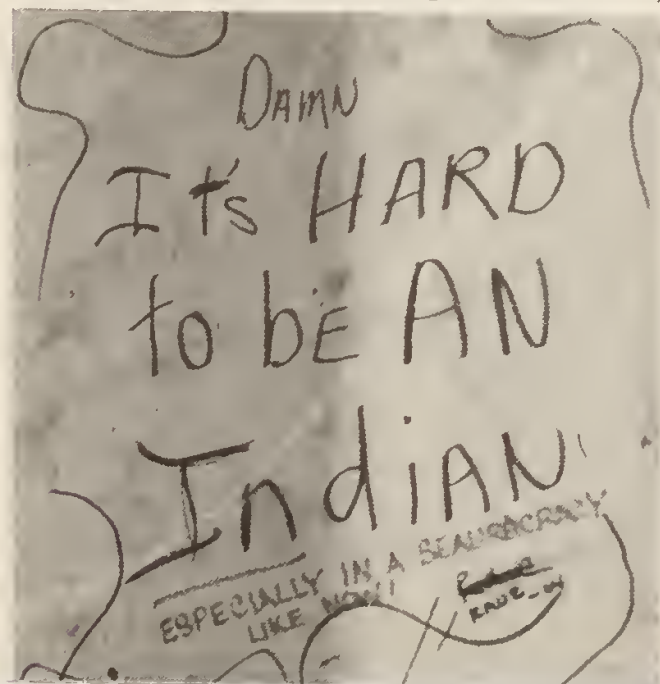 DAMN
It's HARD
to bE AN
IndiAN
ESPECIALLY IN A BEAURACRACY
LIKE NOW!